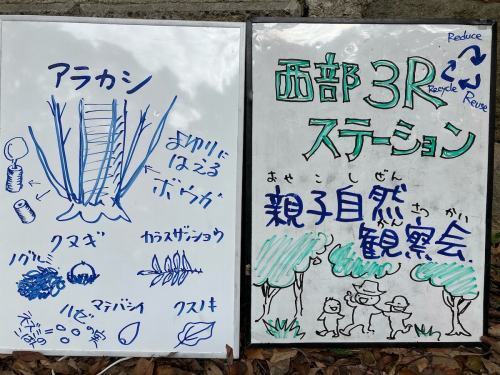 アラカシ
よゆりに
はえる
ボウガ
クヌギ
ノグルミ
カラスザンショウ
ハゼ
の実
マテバシイ
クスノキ
西部3R
ステーション
Reduce
Recycle
Reuse
おやこしぜん
親子自然
かんさつかい
観察会